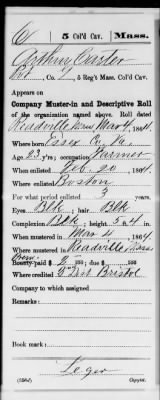 C 5 Col'd Cav. Mass.
Arthur Carter
Pvt., Co. , 5 Reg't Mass. Col'd Cav.
Appears on
Company Muster-in and Descriptive Roll
of the organization named above. Roll dated
Readville Mass Mar 4, 1864.
Where born Essex Co. Va.
Age 23 y'rs; occupation Farmer
When enlisted Feb. 20, 1864.
Where enlisted Boston
For what period enlisted 3 years.
Eyes Blk; hair Blk
Complexion Blk; height 5 ft. 4 in.
When mustered in Mar 4, 1864.
Where mustered in Readville Mass
Bounty paid $ ; due $
Where credited Dist Bristol
Company to which assigned
Remarks:
Book mark:
Leger
Copyist.